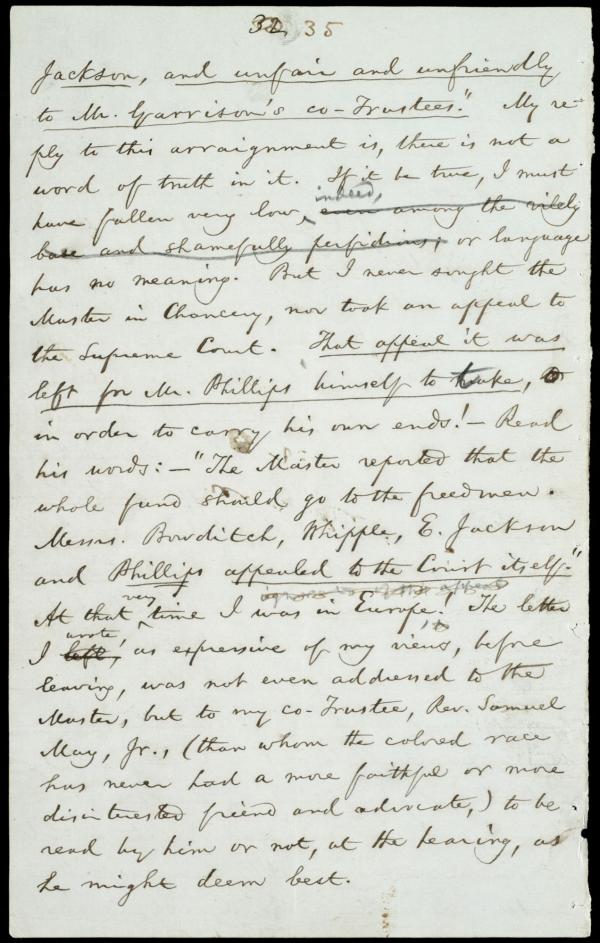 32. 35
Jackson, and unfair and unfriendly
to Mr. Garrison's co-Trustees." My re-
ply to this arraignment is, there is not a
word of truth in it. If it be true, I must
indeed,
have fallen very low, even among the vilely
base and shamefully perfidious, or language
has no meaning. But I never sought the
Master in Chancery, nor took an appeal to
the Supreme Court. That appeal it was
left for Mr. Phillips himself to make,
in order to carry his own ends! — Read
his words: — "The Master reported that the
whole fund should go to the freedmen.
Messrs. Bowditch, Whipple, E. Jackson
and Phillips appealed to the Court itself."
very
At that time I was in Europe! The letter
wrote,
I left, as expressive of my views, before
leaving, was not even addressed to the
Master, but to my co-Trustee, Rev. Samuel
May, Jr., (than whom the colored race
has never had a more faithful or more
disinterested friend and advocate,) to be
read by him or not, at the hearing, as
he might deem best.